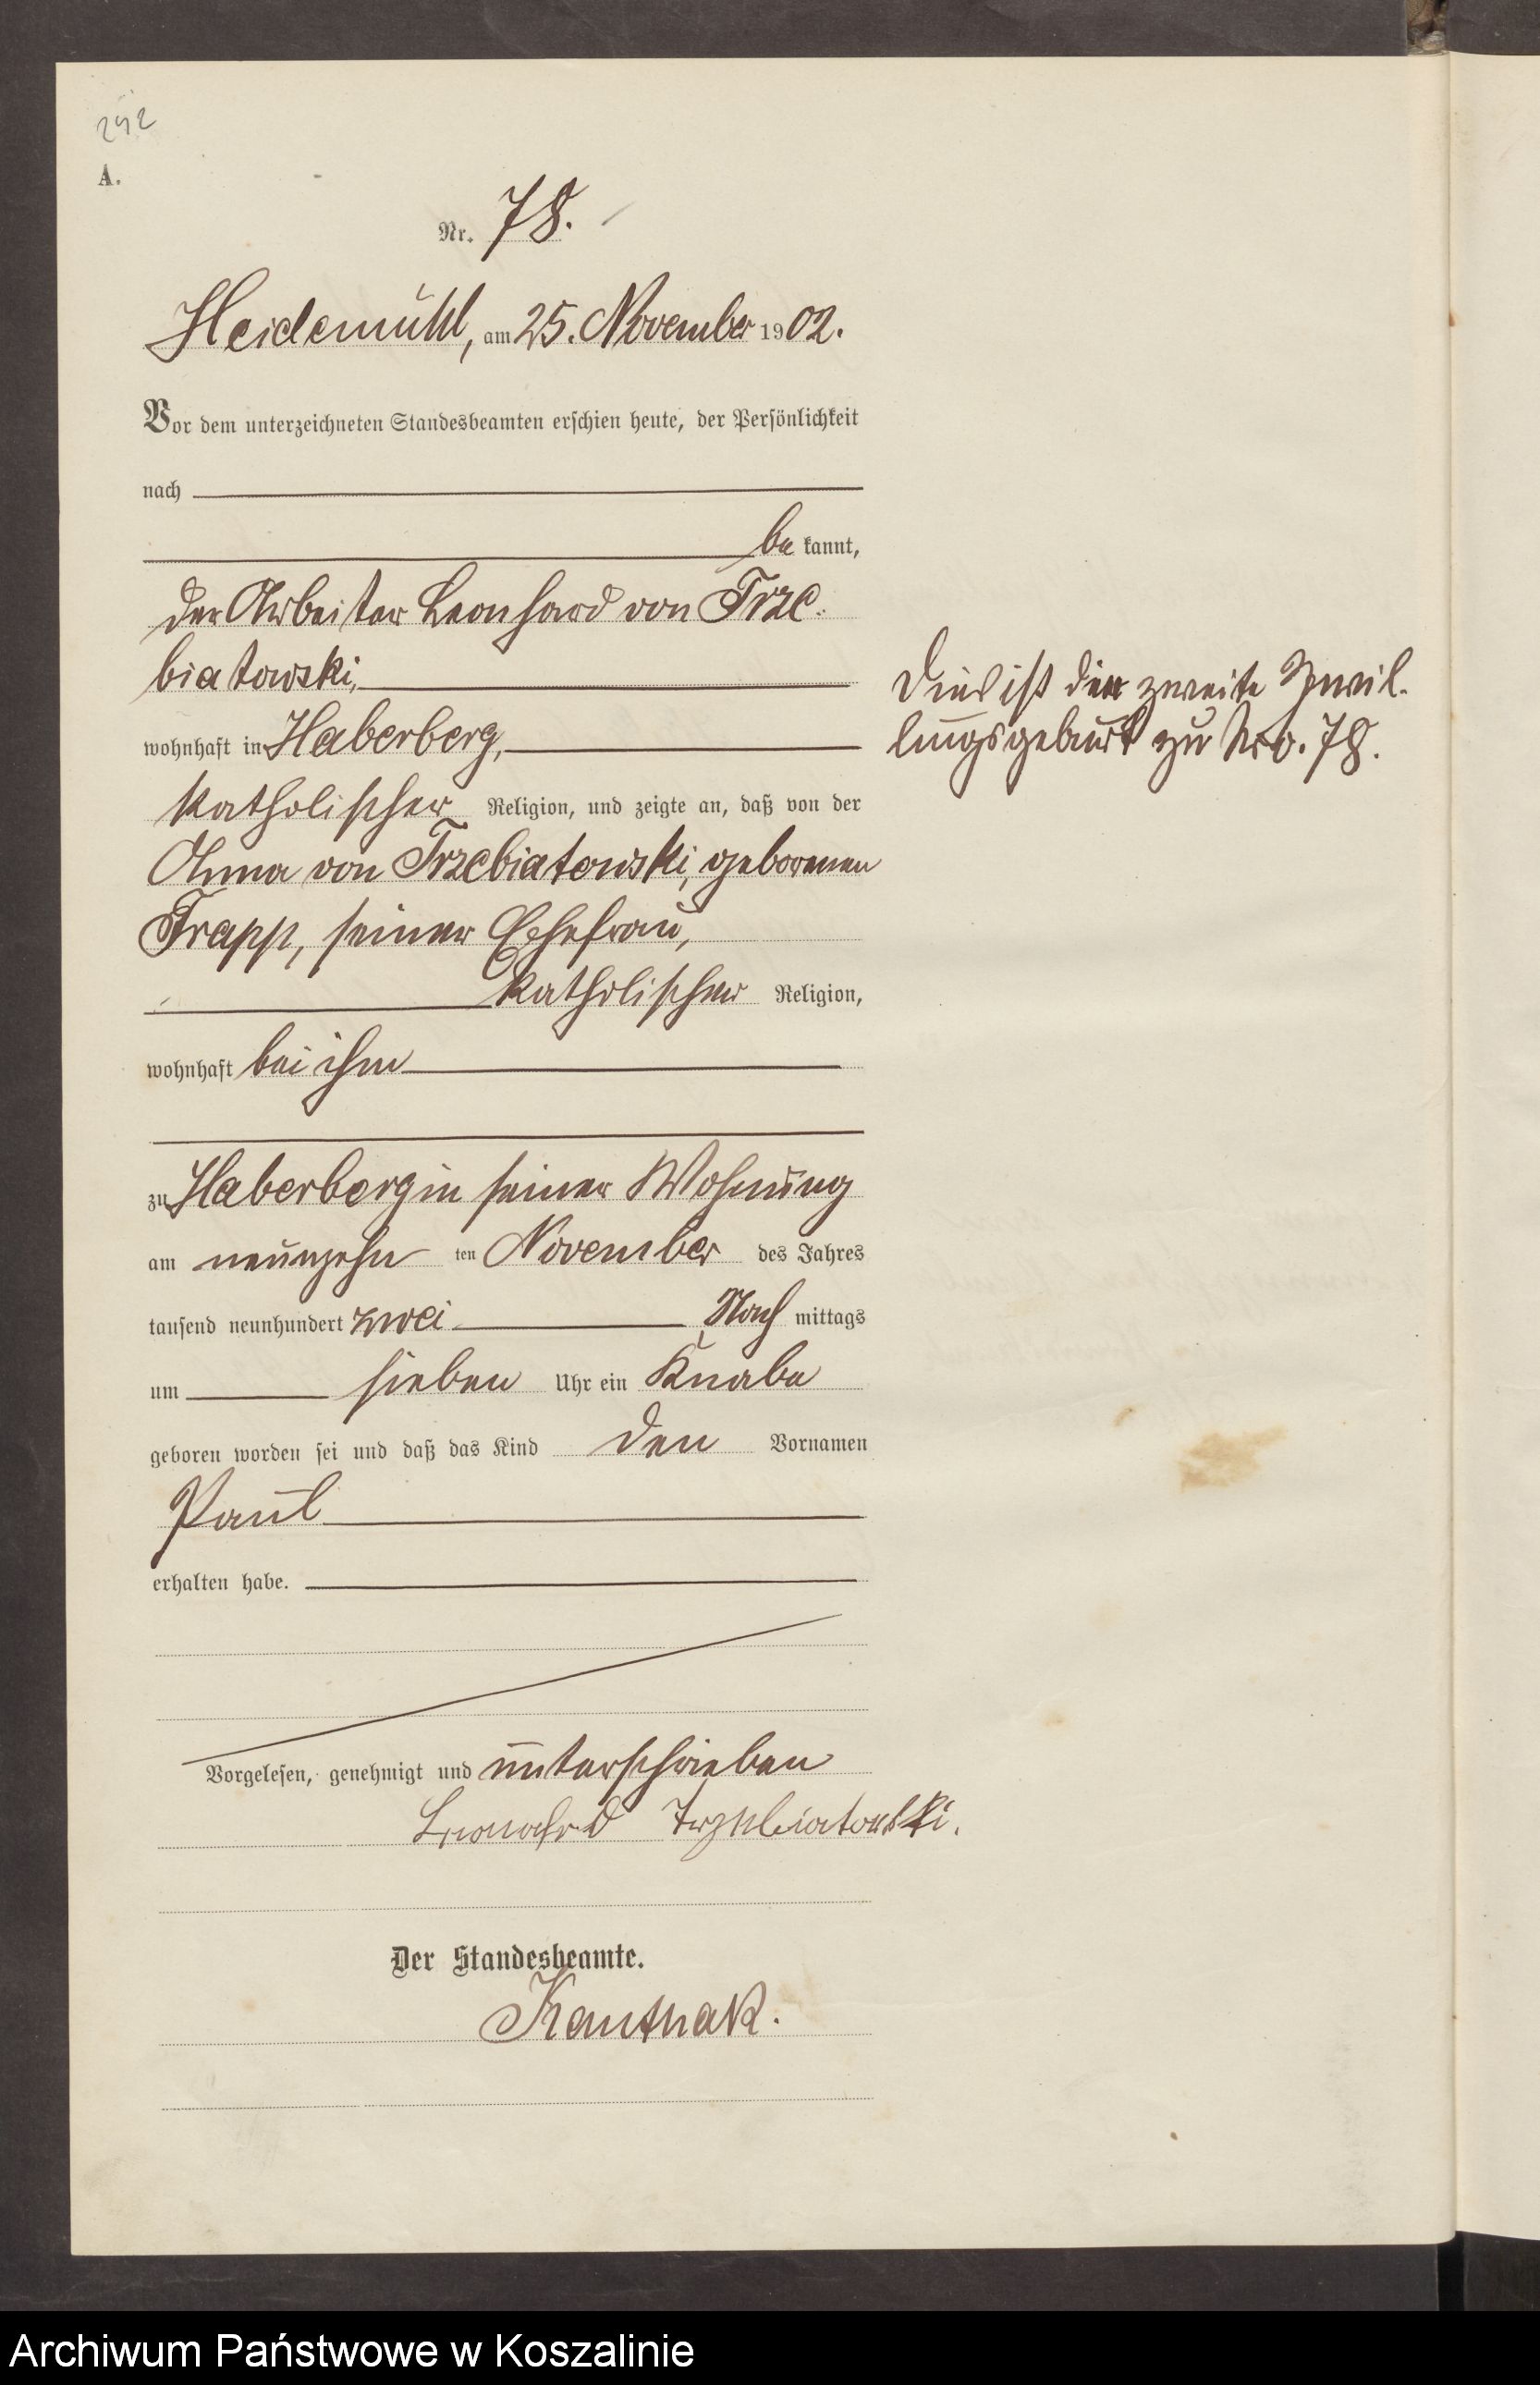 242
A.
Nr. 78.
Heidemühl, am 25. November 1902.
Vor dem unterzeichneten Standesbeamten erschien heute, der Persönlichkeit
nach
be kannt,
der Arbeiter Leonhard von Trze-
biatowski,
wohnhaft in Haberberg,
katholischer Religion, und zeigte an, daß von der
Anna von Trzebiatowski, geborenen
Trapp, seiner Ehefrau,
katholischer Religion,
wohnhaft bei ihm
zu Haberberg in seiner Wohnung
am neunzehn ten November des Jahres
tausend neunhundert zwei Nach mittags
um sieben Uhr ein Knabe
geboren worden sei und daß das Kind den Vornamen
Paul
erhalten habe.
Vorgelesen, genehmigt und unterschrieben
Leonahrd Trzebiatowski.
Der Standesbeamte.
Kauthak.
Dies ist die zweite Zwil-
lingsgeburt zu Nro. 78.
Archiwum Państwowe w Koszalinie